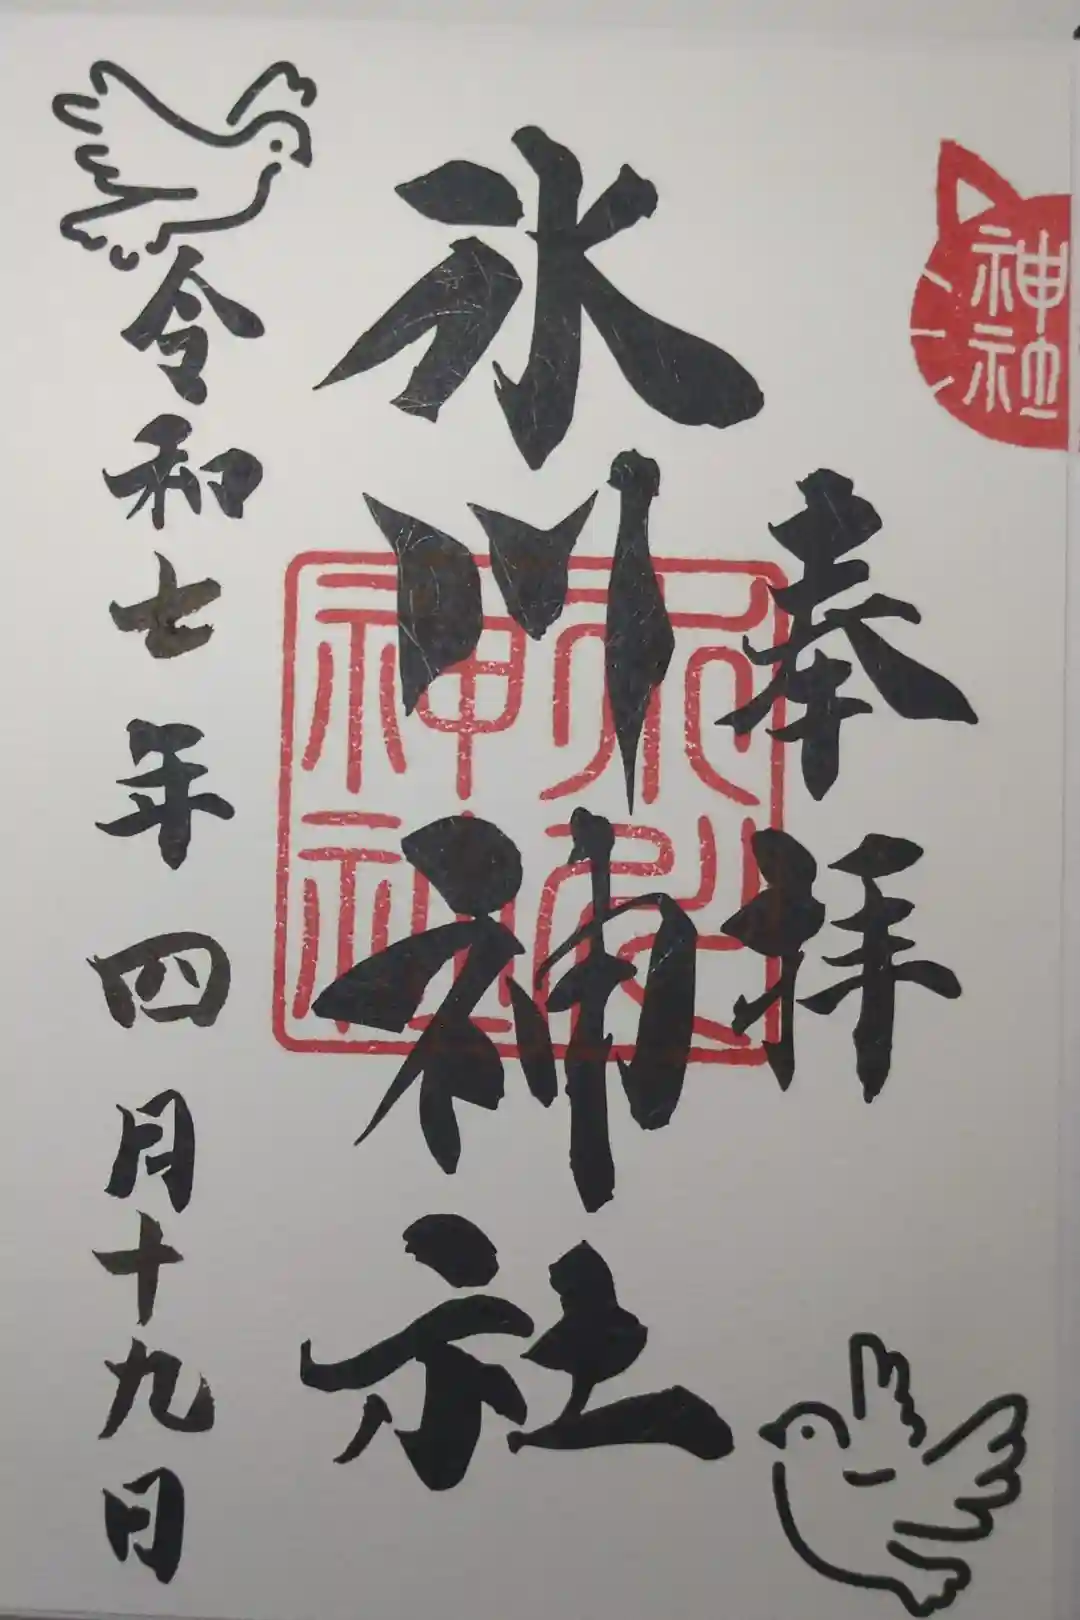 神社
奉拝
氷川神社
氷川
神社
令和七年四月十九日